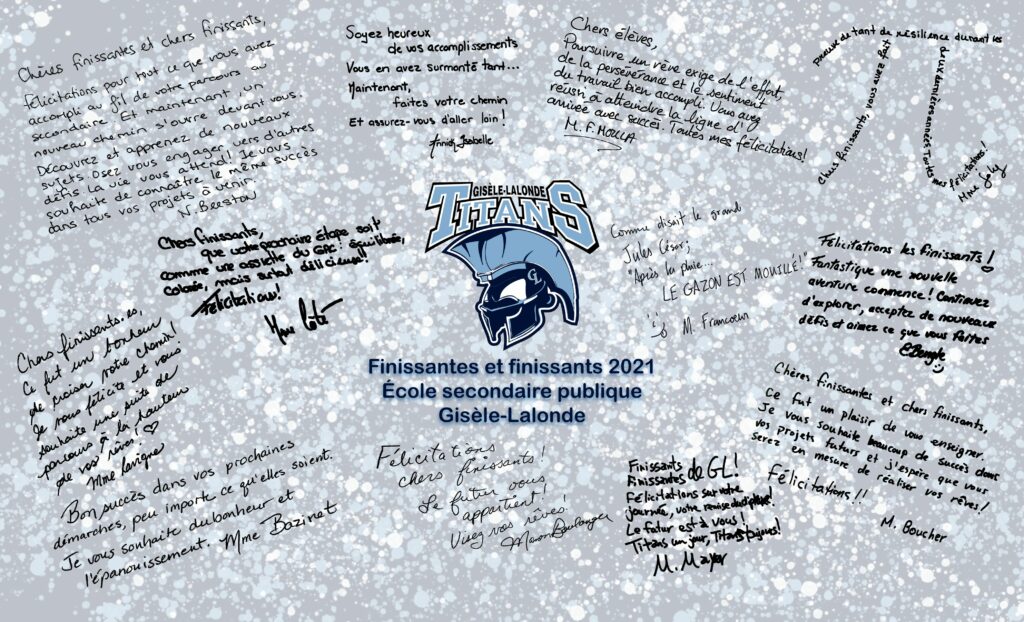 Chères finissantes et chers finissants,
Félicitations pour tout ce que vous avez
accompli au fil de votre parcours au
secondaire. Et maintenant, un
nouveau chemin s'ouvre devant vous.
Découvrez et apprenez de nouveaux
sujets. Osez vous engager vers d'autres
défis. La vie vous attend! Je vous
souhaite de connaître le même succès
dans tous vos projets à venir.
N. Beeston
Soyez heureux
de vos accomplissements
Vous en avez surmonté tant...
Maintenant,
faites votre chemin
Et assurez-vous d'aller loin!
Isabelle
Chers élèves,
Poursuivre un rêve exige de l'effort,
de la persévérance et le sentiment
du travail bien accompli. Vous avez
réussi à atteindre la ligne d'
arrivée avec succès. Toutes mes félicitations!
M. F. MOULLA
Chers finissants, vous avez fait
preuve de tant de résilience durant les
deux dernières années. Toutes mes félicitations!
Mme Joly
GISÈLE-LALONDE
TITANS
GL
Chers finissants,
que votre prochaine étape soit
comme une assiette du GAC! équilibrée,
colorée, mais surtout délicieuse!!
Félicitations!
Mme Côté
Comme disait le grand
Jules César;
"Après la pluie...
LE GAZON EST MOUILLÉ!"
M. Francoeur
Félicitations les finissants!
Fantastique une nouvelle
aventure commence! Continuez
d'explorer, acceptez de nouveaux
défis et aimez ce que vous faites
Chers finissant.es,
Ce fut un bonheur
de croiser votre chemin!
Je vous félicite et vous
souhaite une suite de
parcours à la hauteur
de vos rêves!
Mme Lavigne
Finissantes et finissants 2021
École secondaire publique
Gisèle-Lalonde
Chères finissantes et chers finissants,
Ce fut un plaisir de vous enseigner.
Je vous souhaite beaucoup de succès dans
vos projets futurs et j'espère que vous
serez en mesure de réaliser vos rêves!
Félicitations!!
M. Boucher
Bon succès dans vos prochaines
démarches, peu importe ce qu'elles soient.
Je vous souhaite du bonheur et
l'épanouissement. Mme Bazinet
Félicitations
chers finissants!
Le futur vous
appartient!
Vivez vos rêves!
Manon Boulanger
Finissants
Finissantes de GL!
Félicitations sur votre
journée, votre remise du diplôme!
Le futur est à vous!
Titans un jour, Titans toujours!
M. Mayer